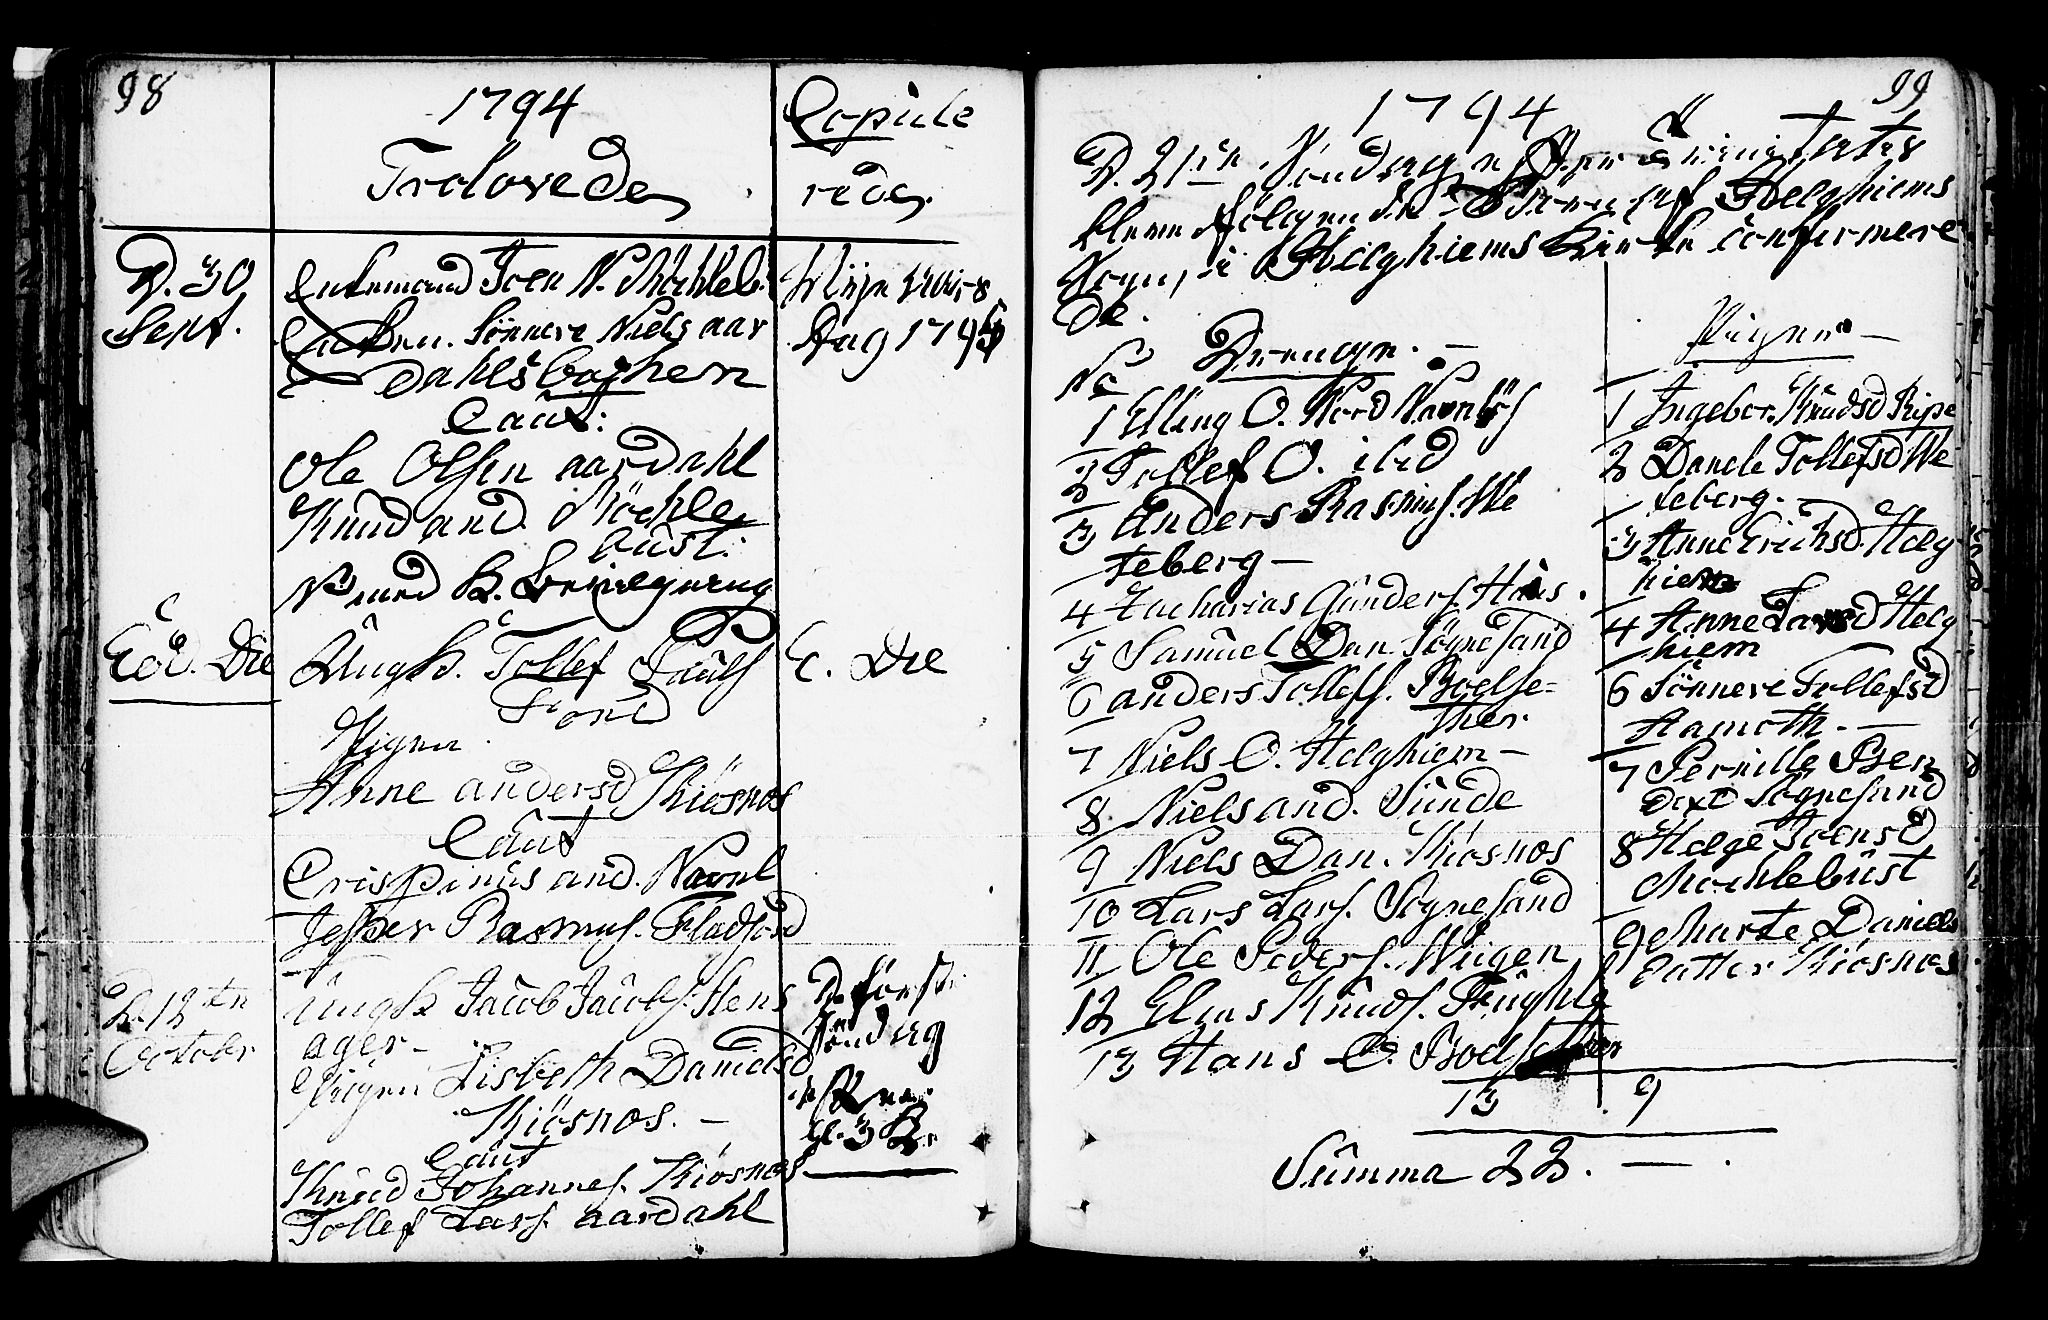 98
1794
Trolovede
Copule
rede.
D. 30
Sept.
Enkemand Joen N. Möchleb.
Enken. Sönneve Niels aar
dahls baghem
Caut:
Ole Olsen aardahl
Knud and. Möchle
bust:
N. med K. Bevilgning
Dag 1795
Eod. Die
Ungk. Tollef Pauls
Fond
Pigen
Anne andersd Kiösnos
Caut
Crispinus and. Navnl
Jesper Rasmus. Fladfond
E. Die
D. 12ten
Octobr
Ungk Jacob Jacobs. Hens
ager
Pigen Lisbeth Danielsd
Kiösnos. –
Caut
Knud Johannes. Kiosnos
Tollef Lars. aardahl
D. förste
Söndag
99
1794
D. 21de Söndag efter Trinitatis
bleve fölgende Börn af Helghiems
Sogn, i Helghiems Kirke confirmere
de.
No Drenge. –
1 Elling O. Nord Navnlös
2 Tollef O. ibid
3 Anders Rasmus. We
teberg –
4 Zacharias Gunders. Huus.
5 Samuel Dan Sögnesand
6 anders Tollefs. Boelse=
ther
7 Niels O. Helghiem –
8 Niels and. Sunde
9 Niels Dan. Kiosnos
10 Lars Lars. Sognesand
11 Ole Peders. Wiigen
12 Elias Knuds. Fughle
13 Hans O. Boelsether
13
Piger –
1 Ingebor. Knudsd Ripe
2 Danele Tollefsd We
teberg. –
3 Anne Erichsd. Helg
hiem
4 Anne Larsd Helg
hiem
6 Sönneve Tollefsd
Aamoth. –
7 Pernille Ben
dixd Sognesund
8 Helge Joensd
Mochlebust
9 Marte Daniels
datter Kiosnos.
9
Summa 22. –